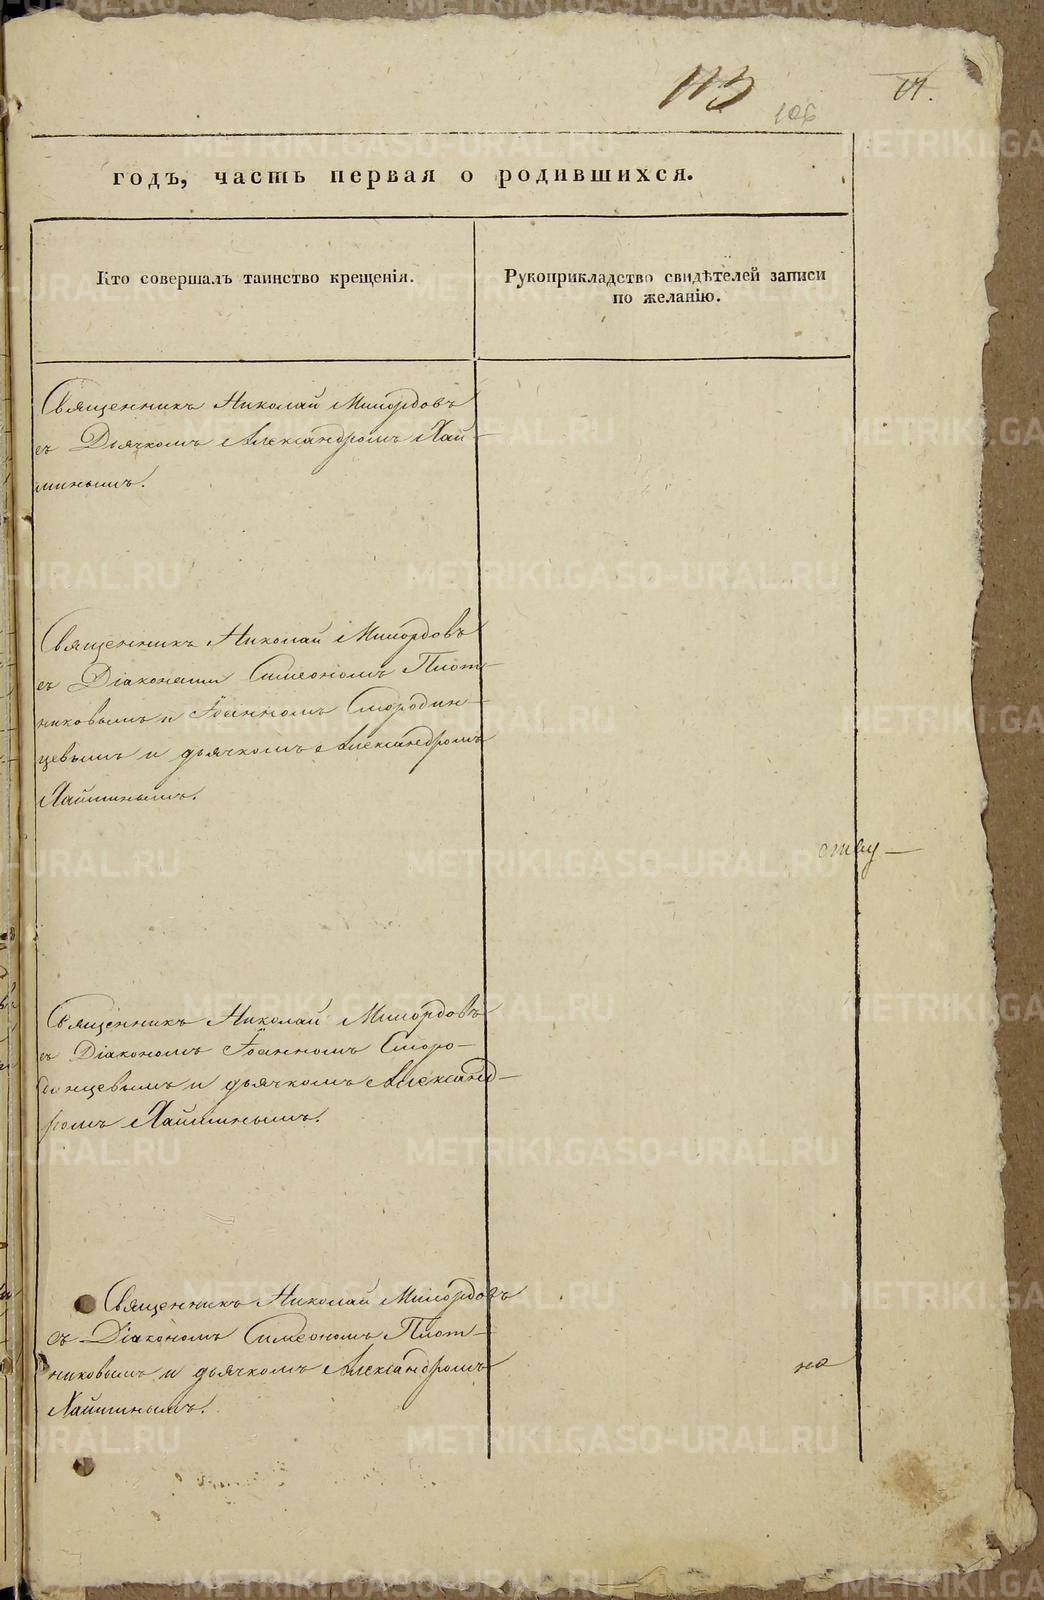 113
106
годъ, часть первая о родившихся.
Кто совершалъ таинство крещенія.
Рукоприкладство свидѣтелей записи
по желанію.
Священникъ Николай Милордовъ
съ Дьячкомъ Александромъ Хай-
минымъ.
Священникъ Николай Милордовъ
съ Діаконами Симеономъ Плот-
никовымъ и Іоанномъ Смородин-
цевымъ и дьячкомъ Александромъ
Хайминымъ.
ству
Священникъ Николай Милордовъ
съ Діакономъ Іоанномъ Сморо-
динцевымъ и дьячкомъ Александ-
ромъ Хайминымъ.
Священникъ Николай Милордовъ
съ Діакономъ Симеономъ Плот-
никовымъ и дьячкомъ Александромъ
Хайминымъ.
но
METRIKI.GASO-URAL.RU